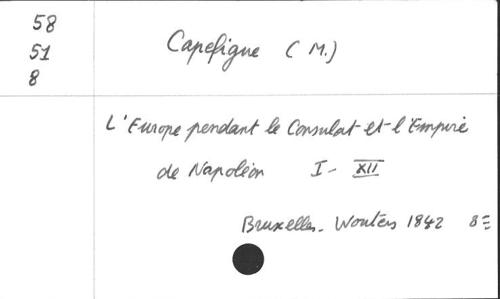 58
51
8
Capefigue ( M.)
L'Europe pendant le Consulat et l'Empire
de Napoléon I - XII
Bruxelles. Wouters 1842 8=